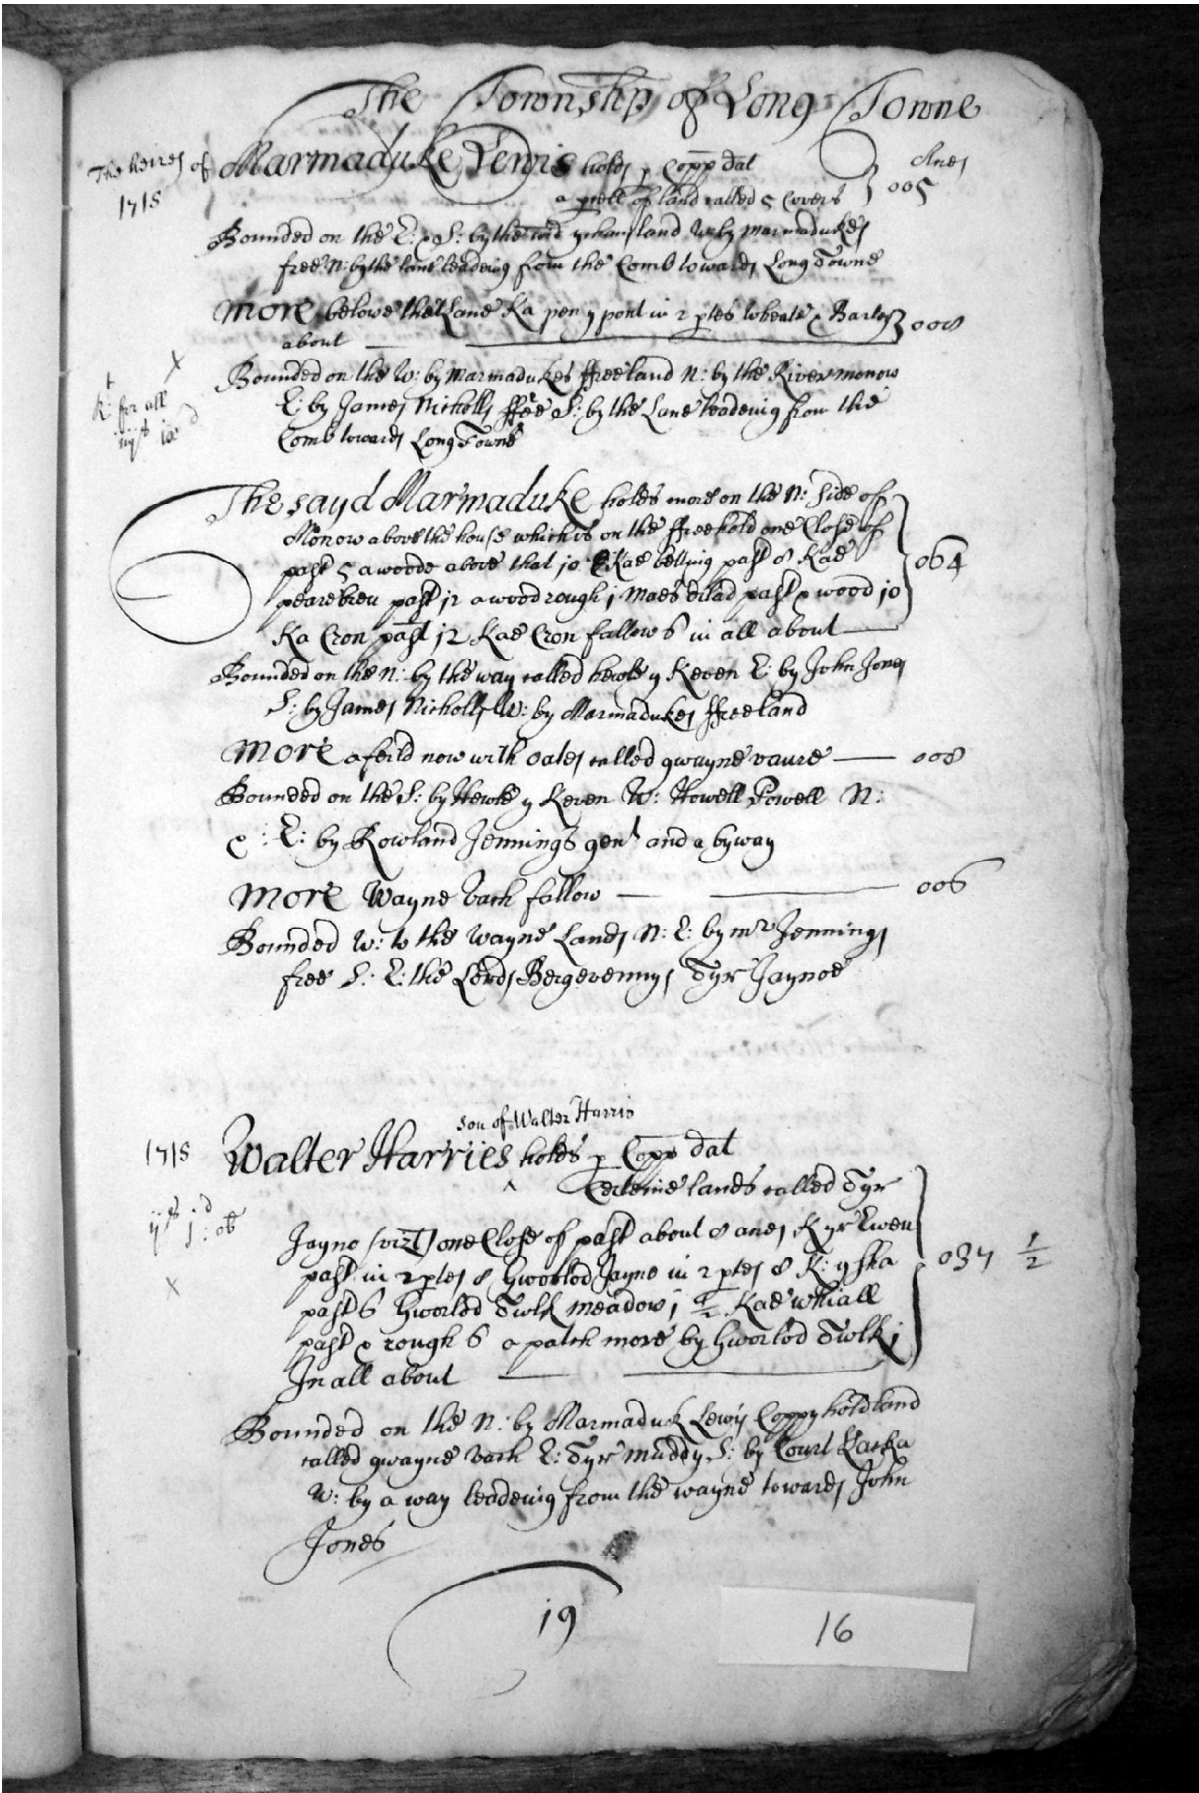 The Township of Long Towne
The heires of Marmaduke Lewis holds p Copp dat Acres
1718 a pcell of land called 5 Covers 005
Bounded on the E: & S: by the land W: by Marmadukes
free: N: by the lane leadeing from the Comb towards Long Towne
More belowe the Lane Ka pen y pont in 2 ptes wheate & Barley 008
about
Bounded on the W: by Marmadukes ffreeland N: by the River monow
E: by James Nicholls ffree S: by the Lane leadeing from the
Comb towards Long Towne
x
R:t for all
iijs
The sayd Marmaduke holds more on the N: side of
Monow above the house which is on the ffreehold one Close of
past 5 a woode above that 10 Kae betting past 8 Kae 064
pearebren past 12 a wood rough j Maes dilad past & wood 10
Ka Cron past 12 Kae Cron fallow 6 in all about
Bounded on the N: by the way called hewle y Keven E: by John Jones
S: by James Nicholls W: by Marmadukes ffreeland
More a feild now with oates called gwayne vaure 008
Bounded on the S: by Hewle y Keven W: Howell Powell N:
& : E: by Rowland Jennings gent and a byway
More Wayne vach fallow 006
Bounded W: to the wayne Lands N: E: by mr Jennings
free S: E: the Lords Bergevennys Tyr Jaynoe
son of Walter Harris
1718 Walter Harries holds p Copp dat
^ Certeine lands called Tyr
ijs jd : ob
Jayno (vizt) one Close of past about 8 acres K yr Ewen
past in 2 ptes 8 Gworlod Jayne in 2 ptes 8 K: y ska 037 1/2
x
past 6 Gworlod Twlk meadow j 1/2 Kae whiall
past & rough 6 a patch more by Gworlod Twlk j
In all about
Bounded on the N: by Marmaduk Lewis Coppyhold land
called gwayne vach E: Tyr muddy S: by Court Kacka
W: by a way leadeing from the wayne towards John
Jones
19
16